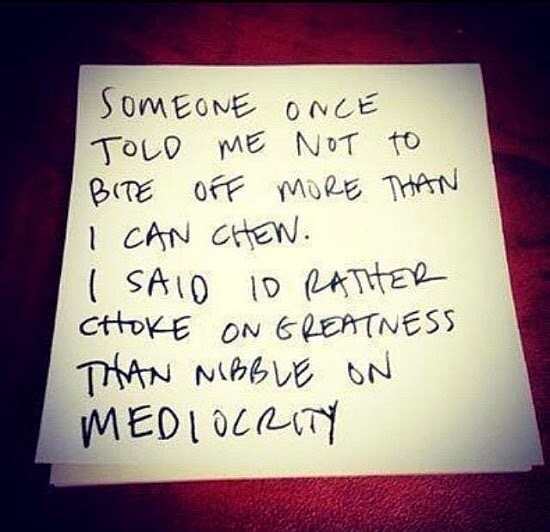 SOMEONE ONCE
TOLD ME NOT TO
BITE OFF MORE THAN
I CAN CHEW.
I SAID ID RATHER
CHOKE ON GREATNESS
THAN NIBBLE ON
MEDIOCRITY